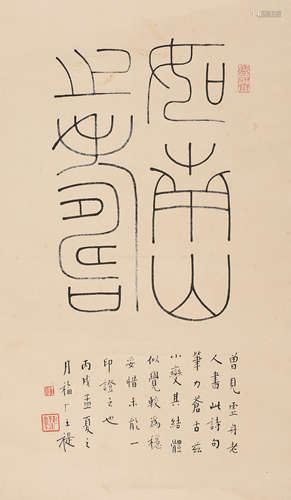 如南山
之壽
曾見虛舟老
人書此詩句
筆力蒼古茲
小變其結體
似覺較為穩
妥惜未能一
印證之也
丙戌孟夏之
月福厂王禔